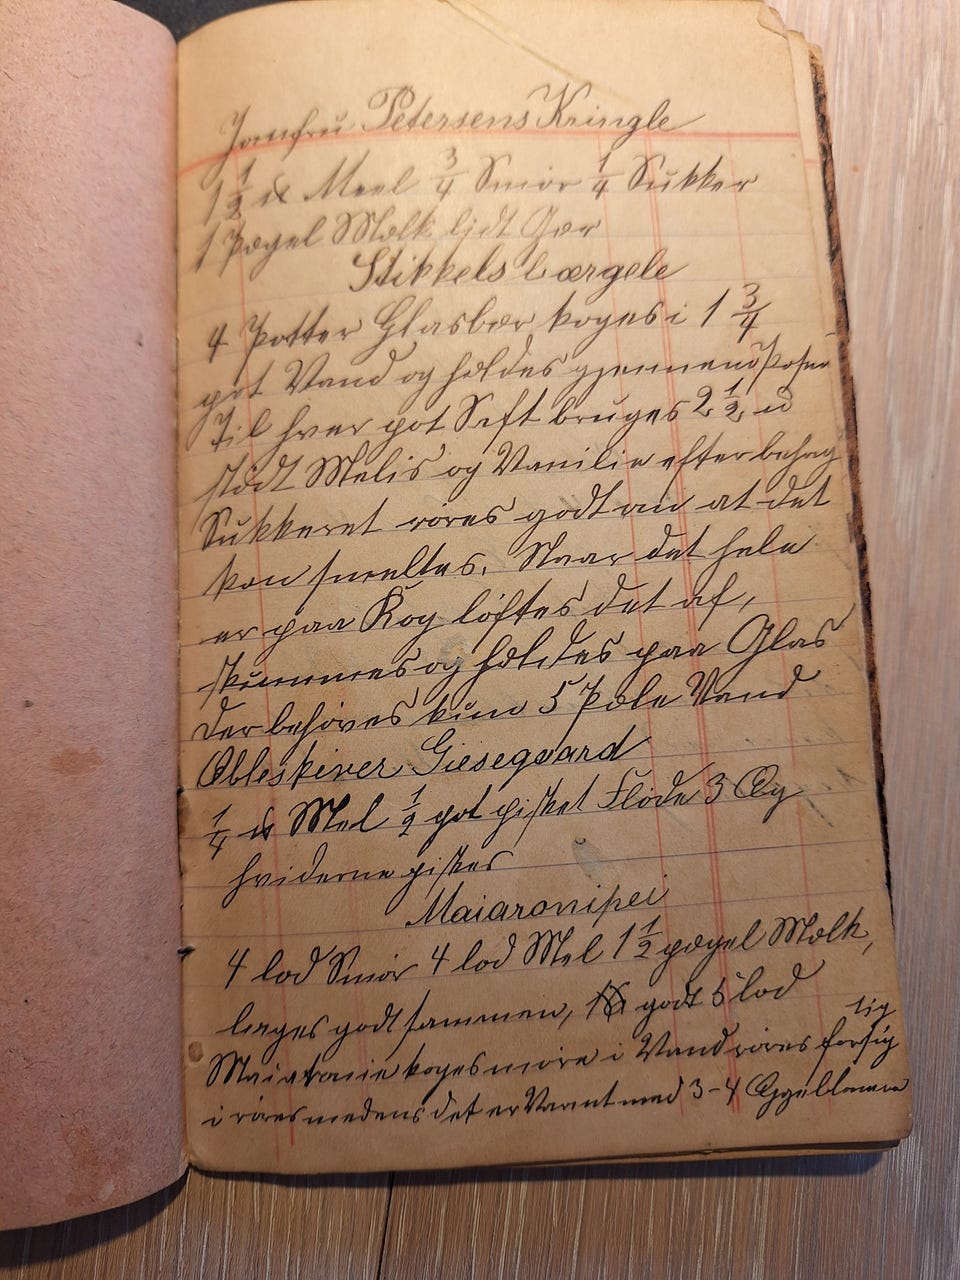 Jomfru Petersens Kringle
1 1/2 ℔ Meel 3/4 Smør 1/4 Sukker
1 Pægel Mælk lidt Gær
Stikkelsbærgele
4 Potter Glasbær koges i 1 3/4
pot Vand og heldes gjennem Posen
Til hver pot Saft bruges 2 1/2 ℔
stødt Melis og Vanilie efter behag
Sukkeret røres godt om at det
kan smeltes. Naar det hele
er paa Kog løftes det af,
skummes og heldes paa Glas
der behøves kun 5 Pæle Vand
Æbleskiver Giesegaard
1/4 ℔ Mel 1/2 pot pisket Fløde 3 Æg
hviderne piskes
Maiaronipei
4 lod Smør 4 lod Mel 1 1/2 pægel Mælk,
bages godt sammen, godt 5 lod
Maiaronie koges møre i Vand røres forsig
tig
i røres medens det er Varmt med 3-4 Æggeblomme